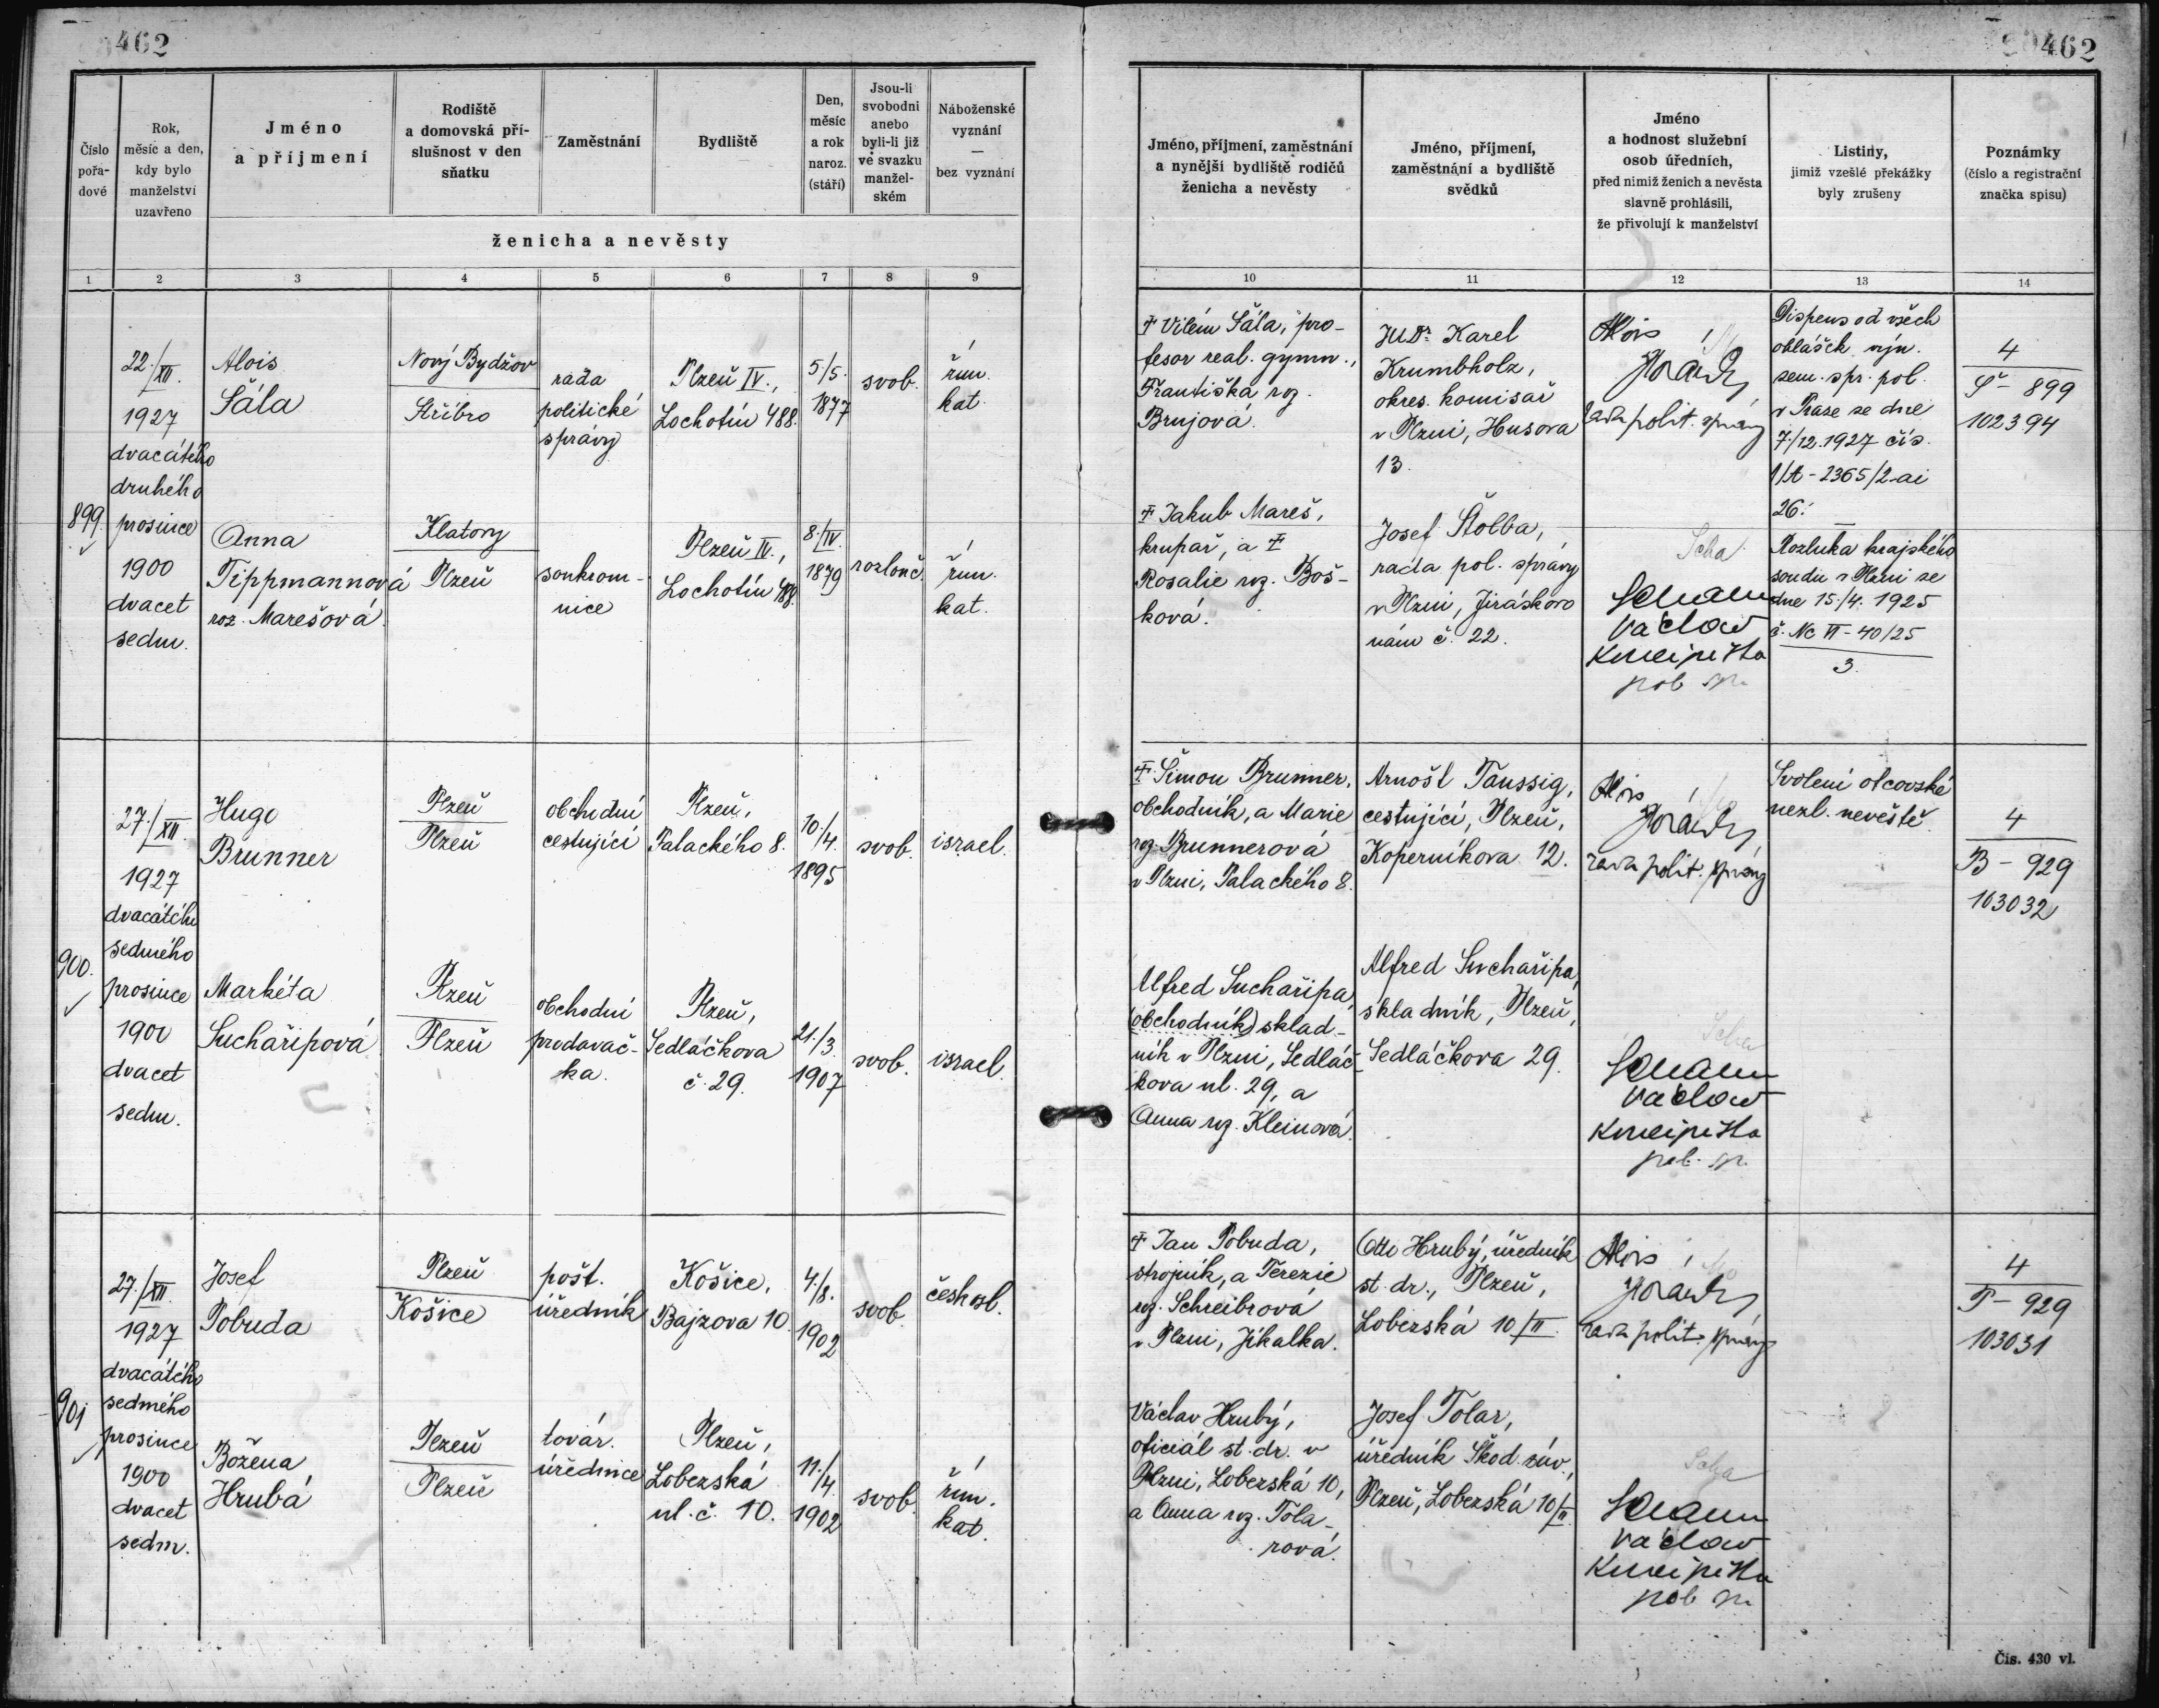 462
462
Číslo pořa-dové
Rok, měsíc a den, kdy bylo manželství uzavřeno
Jméno a příjmení
Rodiště a domovská pří-slušnost v den sňatku
Zaměstnání
Bydliště
Den, měsíc a rok naroz. (stáří)
Jsou-li svobodni anebo byli-li již ve svazku manžel-ském
Náboženské vyznání — bez vyznání
ženicha a nevěsty
Jméno, příjmení, zaměstnání a nynější bydliště rodičů ženicha a nevěsty
Jméno, příjmení, zaměstnání a bydliště svědků
Jméno a hodnost služební osob úředních, před nimiž ženich a nevěsta slavně prohlásili, že přivolují k manželství
Listiny, jimiž vzešlé překážky byly zrušeny
Poznámky (číslo a registrační značka spisu)
1 2 3 4 5 6 7 8 9 10 11 12 13 14
899.
22./XII.
1927
dvacátého
druhého
prosince
1900
dvacet
sedm.
Alois
Šála
Nový Bydžov
Stříbro
rada
politické
správy
Plzeň IV.,
Lochotín 488.
5/5.
1877
svob.
řím.
kat.
Anna
Tippmannová
roz. Marešová
Klatovy
Plzeň
soukrom-
nice
Plzeň IV.,
Lochotín 488.
8./IV.
1879
rozlouč.
řím.
kat.
† Vilém Šála, pro-
fesor real. gymn.,
Františka roz.
Brujová.
† Jakub Mareš,
krupař, a †
Rosalie roz. Boš-
ková.
JUDr. Karel
Krumbholz,
okres. komisař
v Plzni, Husova
13.
Josef Štolba,
rada pol. správy
v Plzni, Jiráskovo
nám č. 22.
Alois
rada polit. správy
Scha
Václav
pol. spr.
Dispens od všech
ohlášek výn.
zem. spr. pol.
v Praze ze dne
7./12.1927 čís.
1/A-2365/2-ai
26.
Rozluka krajského
soudu v Plzni ze
dne 15./4. 1925
č. Nc VI-40/25
3.
4
Š - 899
102394
900.
27./XII.
1927
dvacátého
sedmého
prosince
1900
dvacet
sedm.
Hugo
Brunner
Plzeň
Plzeň
obchodní
cestující
Plzeň,
Palackého 8.
10./4.
1895
svob.
israel.
Markéta
Suchařipová
Plzeň
Plzeň
obchodní
prodavač-
ka.
Plzeň,
Sedláčkova
č. 29.
21./3.
1907
svob.
israel.
† Šimon Brunner,
obchodník, a Marie
roz. Brunnerová
v Plzni, Palackého 8.
Alfred Suchařipa,
(obchodník) sklad-
ník v Plzni, Sedláč-
kova ul. 29, a
Anna roz. Kleinová.
Arnošt Taussig,
cestující, Plzeň,
Koperníkova 12.
Alfred Suchařipa,
skladník, Plzeň,
Sedláčkova 29.
Alois
rada polit. správy
Václav
pol. spr.
Svolení otcovské
nezl. nevěstě.
4
B - 929
103032
901
27./XII.
1927
dvacátého
sedmého
prosince
1900
dvacet
sedm.
Josef
Pobuda
Plzeň
Košice
pošt.
úředník
Košice,
Bajzova 10.
4./8.
1902
svob.
českosl.
Božena
Hrubá
Plzeň
Plzeň
továr.
úřednice
Plzeň,
Lobezská
ul. č. 10.
11./4.
1902
svob.
řím.
kat.
† Jan Pobuda,
strojník, a Terezie
roz. Schreibrová
v Plzni, Jikalka.
Václav Hrubý,
oficiál st. dr. v
Plzni, Lobezská 10,
a Anna roz. Tola-
rová.
Otto Hrubý, úředník
st. dr., Plzeň,
Lobezská 10/II.
Josef Tolar,
úředník Škod. záv.,
Plzeň, Lobezská 10/II.
Alois
rada polit. správy
Václav
pol. spr.
4
P - 929
103031
Čís. 430 vl.